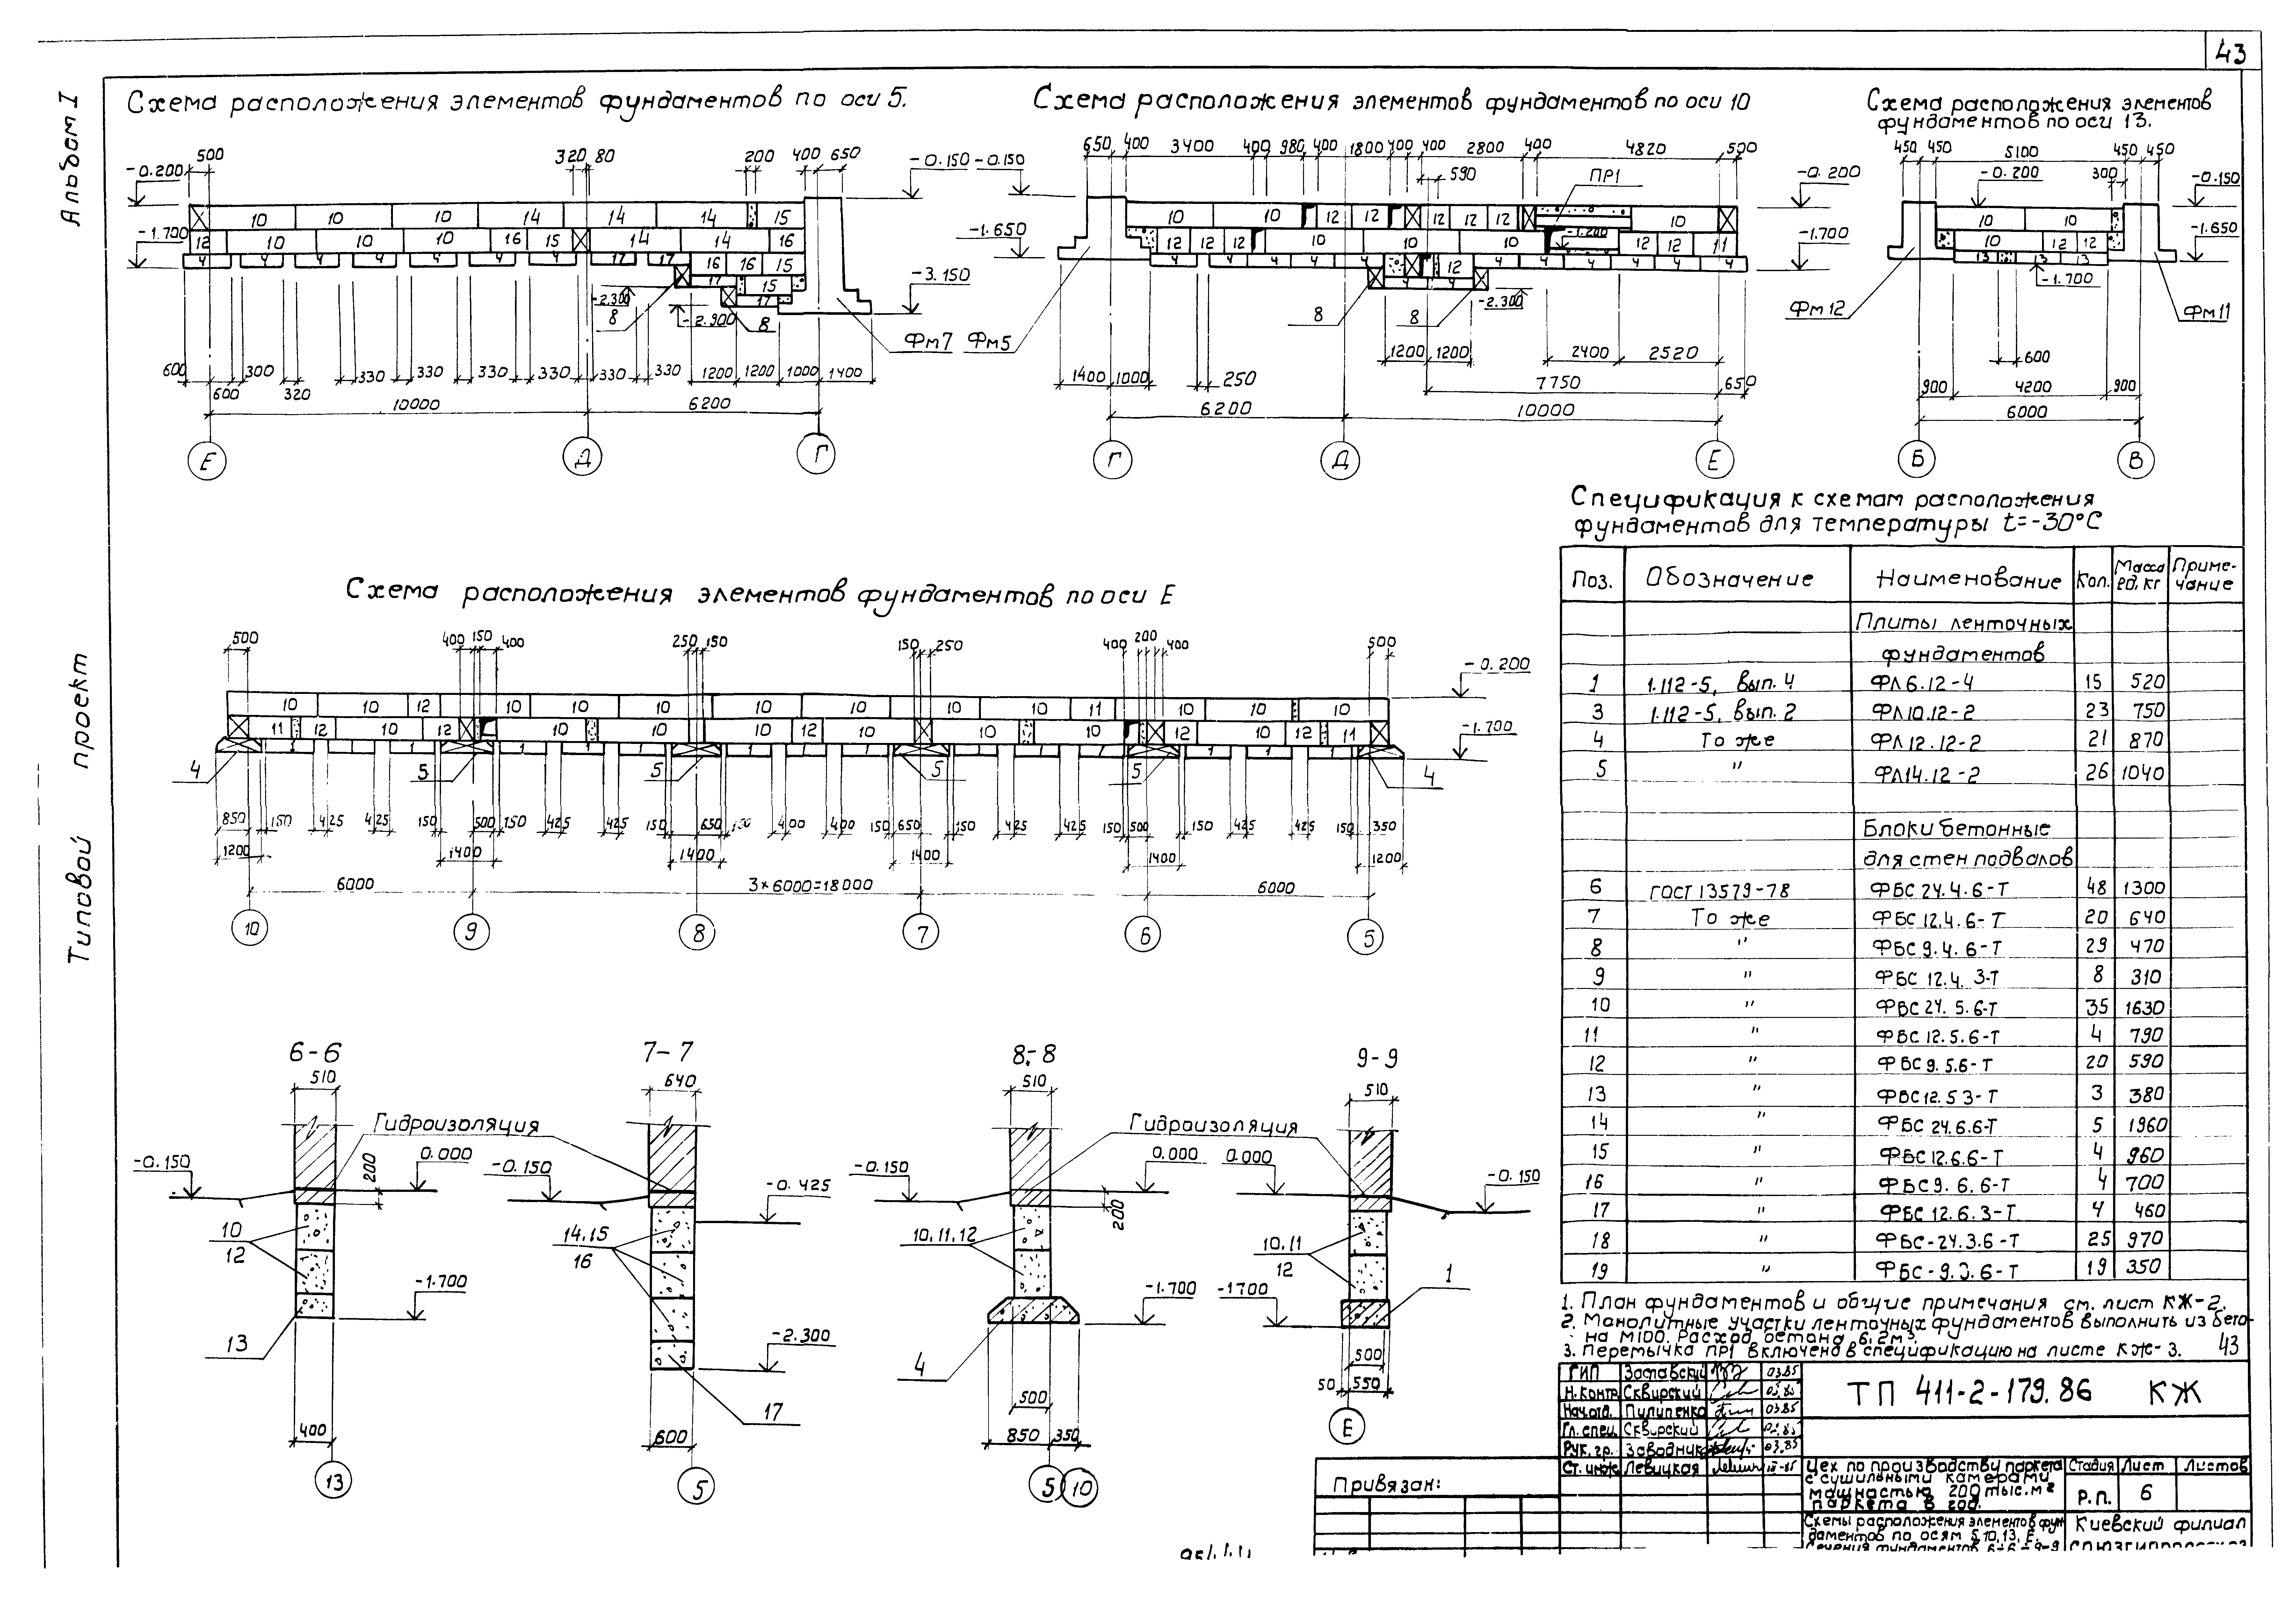 43
Альбом I
Типовой проект
Схема расположения элементов фундаментов по оси 5.
500 320 80 200 400 650
-0.200 -0.150
10 10 10 14 14 14 15
-1.700
12 10 10 10 16 15 14 14 16
4 4 4 4 4 4 4 17 17 16 16 15
17 15
17
-3.150
-2.300
8
-2.900
8
Фм7
600 300 330 330 330 330 330 330 1200 1200 1000 1400
600 320
10000 6200
Е Д Г
Схема расположения элементов фундаментов по оси 10
650 400 3400 400 980 400 1800 400 400 2800 400 4820 500
590
ПР1
-0.150 -0.200
10 10 12 12 12 12 12 10
-1.650 -1.200 -1.700
12 12 12 10 10 10 12 12 11
4 4 4 4 12 4 4 4 4 4
4 4
8 8 -2.300
Фм5
1200 1200 2400 2520
1400 1000 250 7750 650
6200 10000
Г Д Е
Схема расположения элементов
фундаментов по оси 13.
450 450 5100 450 450
-0.200 300 -0.150
10 10
-1.650
10 12 12
13 13 13
-1.700
Фм12 Фм11
600
900 4200 900
6000
Б В
Схема расположения элементов фундаментов по оси Е
500 400 150 400 250 150 150 250 400 200 400 500
-0.200
10 10 12 10 10 10 10 10 10 10 11 10 10
-1.700
11 12 10 12 10 10 10 12 10 10 10 12 10 12 11
4 5 5 5 5 4
850 150 425 425 150 500 150 425 425 150 650 150 400 400 150 650 150 425 425 150 500 150 425 425 150 350
1200 1400 1400 1400 1400 1200
6000 3×6000=18000 6000
10 9 8 7 6 5
6-6
510
Гидроизоляция
-0.150 200 0.000
10
12
-1.700
13
400
13
7-7
640
-0.150 -0.425
14.15
16
-2.300
17
600
5
8-8
510
Гидроизоляция
-0.150 0.000
200
10,11,12
-1.700
4
500
850 350
5 10
9-9
510
0.000 -0.150
10,11
12
1
-1700
500
50 550
Е
Спецификация к схемам расположения
фундаментов для температуры t=-30°С
Поз. Обозначение Наименование Кол. Масса ед, кг Приме-чание
Плиты ленточных
фундаментов
1 1.112-5, вып. 4 ФЛ6.12-4 15 520
3 1.112-5, вып. 2 ФЛ10.12-2 23 750
4 То же ФЛ12.12-2 21 870
5 " ФЛ14.12-2 26 1040
Блоки бетонные
для стен подвалов
6 ГОСТ 13579-78 ФБС 24.4.6-Т 48 1300
7 То же ФБС 12.4.6-Т 20 640
8 " ФБС 9.4.6-Т 29 470
9 " ФБС 12.4. 3-Т 8 310
10 " ФБС 24.5.6-Т 35 1630
11 " ФБС 12.5.6-Т 4 790
12 " ФБС 9.5.6-Т 20 590
13 " ФБС 12.5 3-Т 3 380
14 " ФБС 24.6.6-Т 5 1960
15 " ФБС 12.6.6-Т 4 960
16 " ФБС 9.6.6-Т 4 700
17 " ФБС 12.6.3-Т 4 460
18 " ФБС-24.3.6-Т 25 970
19 " ФБС-9.3.6-Т 19 350
1. План фундаментов и общие примечания см. лист КЖ-2.
2. Монолитные участки ленточных фундаментов выполнить из бето-
на М100. Расход бетона 6,2м³.
3. Перемычка ПР1 включена в спецификацию на листе КЖ-3. 43
ГИП Заставский 03.85
Н.контр Сквирский 03.85
Нач.отд. Пилипенко 03.85
Гл. спец. Сквирский 03.85
Рук. гр. Заводник 03.85
Ст. инж. Левицкая
ТП 411-2-179.86 КЖ
Цех по производству паркета
с сушильными камерами
мощностью 200 тыс.м²
паркета в год.
Стадия Лист Листов
Р.П. 6
Схемы расположения элементов фун
даментов по осям 5,10,13, Е.
Сечения фундаментов 6-6 ÷ 9-9
Киевский филиал
Привязан: